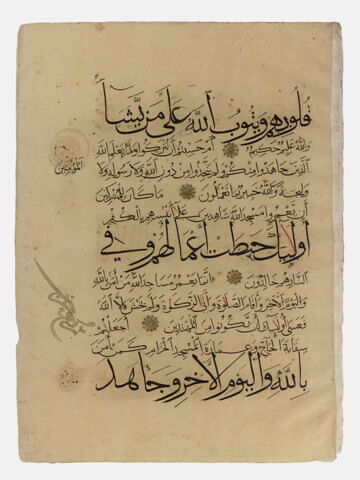 قُلُوبِهِمْ وَيَتُوبُ اللَّهُ عَلَى مَن يَشَاءُ
وَاللَّهُ عَلِيمٌ حَكِيمٌ أَمْ حَسِبْتُمْ أَن تُتْرَكُوا وَلَمَّا يَعْلَمِ اللَّهُ
الَّذِينَ جَاهَدُوا مِنكُمْ وَلَمْ يَتَّخِذُوا مِن دُونِ اللَّهِ وَلَا رَسُولِهِ وَلَا
الْمُؤْمِنِينَ
وَلِيجَةً وَاللَّهُ خَبِيرٌ بِمَا تَعْمَلُونَ مَا كَانَ لِلْمُشْرِكِينَ
أَن يَعْمُرُوا مَسَاجِدَ اللَّهِ شَاهِدِينَ عَلَى أَنفُسِهِم بِالْكُفْرِ
أُولَئِكَ حَبِطَتْ أَعْمَالُهُمْ وَفِي
النَّارِ هُمْ خَالِدُونَ إِنَّمَا يَعْمُرُ مَسَاجِدَ اللَّهِ مَنْ آمَنَ بِاللَّهِ
وَالْيَوْمِ الْآخِرِ وَأَقَامَ الصَّلَوةَ وَآتَى الزَّكَوةَ وَلَمْ يَخْشَ إِلَّا اللَّهَ
فَعَسَى أُولَئِكَ أَن يَكُونُوا مِنَ الْمُهْتَدِينَ أَجَعَلْتُمْ
سِقَايَةَ الْحَاجِّ وَعِمَارَةَ الْمَسْجِدِ الْحَرَامِ كَمَنْ آمَنَ
بِاللَّهِ وَالْيَوْمِ الْآخِرِ وَجَاهَدَ